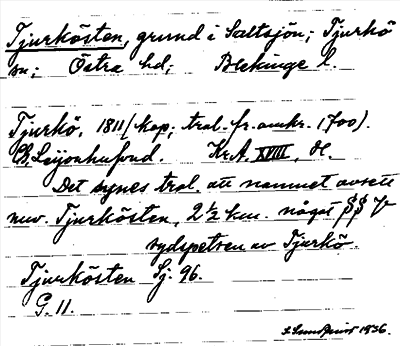 Tjurkösten, grund i Saltsjön; Tjurkö
sn; Östra hd; Blekinge l.
Tjurkö, 1811 (kop; trol. fr. omkr. 1700).
Leijonhufvud. Kr.A. XVIII, H.
Det synes trol. att namnet avsett
nuv. Tjurkösten, 2 ½ km. något
sydspetsen av Tjurkö.
Tjurkösten Sj. 96.
G. 11.
1936.